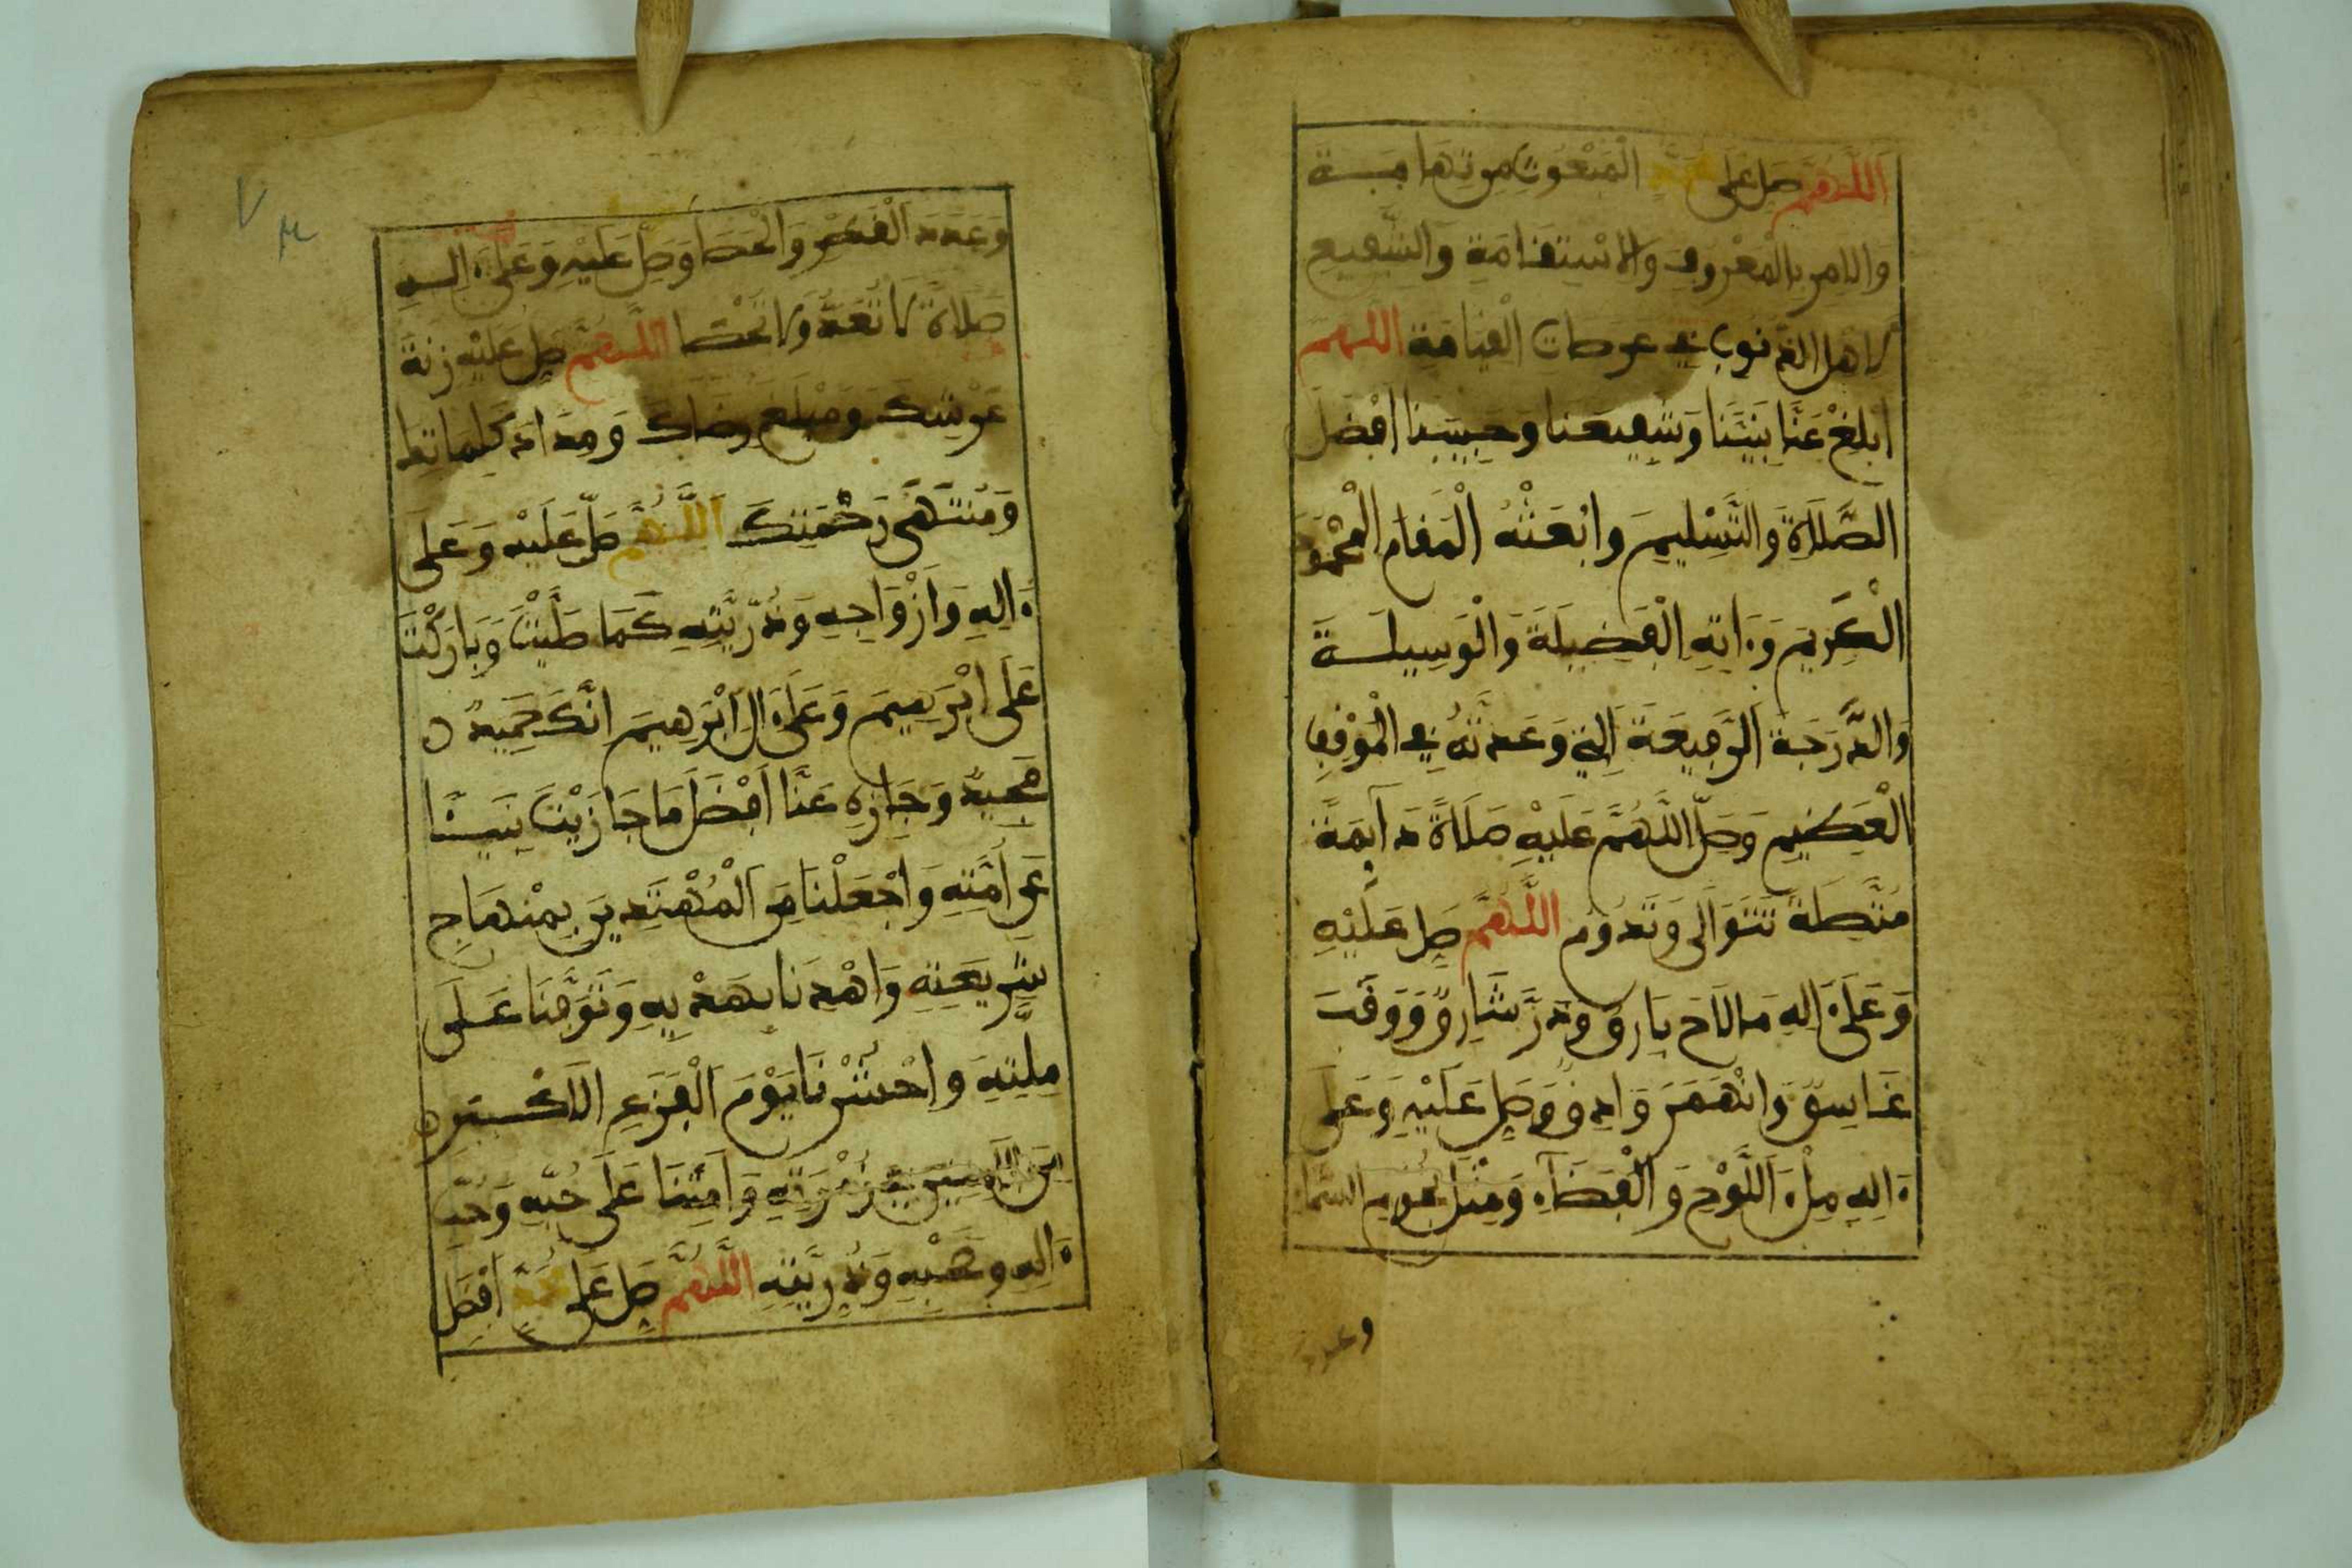 اللهم صل على محمد المبعوث من تهامة
والامر بالمعروف والاستقامة والشفيع
لاهل الذنوب في عرصات القيامة اللهم
ابلغ عنا نبينا وشفيعنا وحبيبنا افضل
الصلاة والتسليم وابعثه المقام المحمود
الكريم وءاته الفضيلة والوسيلة
والدرجة الرفيعة التي وعدته في الموقف
العظيم وصل اللهم عليه صلاة دآيمة
متصلة تتوالى وتدوم اللهم صل عليه
وعلىءاله ما لاح بارق وذر شارق ووقب
غاسق وانهمر وادق وصل عليه وعلى
ءاله ملء اللوح والفضآء ومثل نجوم السما
وعدد
وعدد القطر والحصا وصل عليه وعلىءاله
صلاة لا تعد ولا تحصا اللهم صل عليه زنة
عرشك ومبلغ رضاك ومداد كلماتك
ومنتهى رحمتك اللهم صل عليه وعلى
ءاله وازواجه وذريته كما صليت وباركت
على ابرهيم وعلىءال ابرهيم انك حميد
مجيد وجازه عنا افضل ما جازيت نبيئا
عن امته واجعلنا من المهتدين بمنهاج
شريعته واهدنا بهديه وتوفنا على
ملته واحشرنا يوم الفزع الاكبر
من الامنين في زمرته وامتنا على حبه وحب
ءاله وصحبه وذريته اللهم صل على محمد افضل